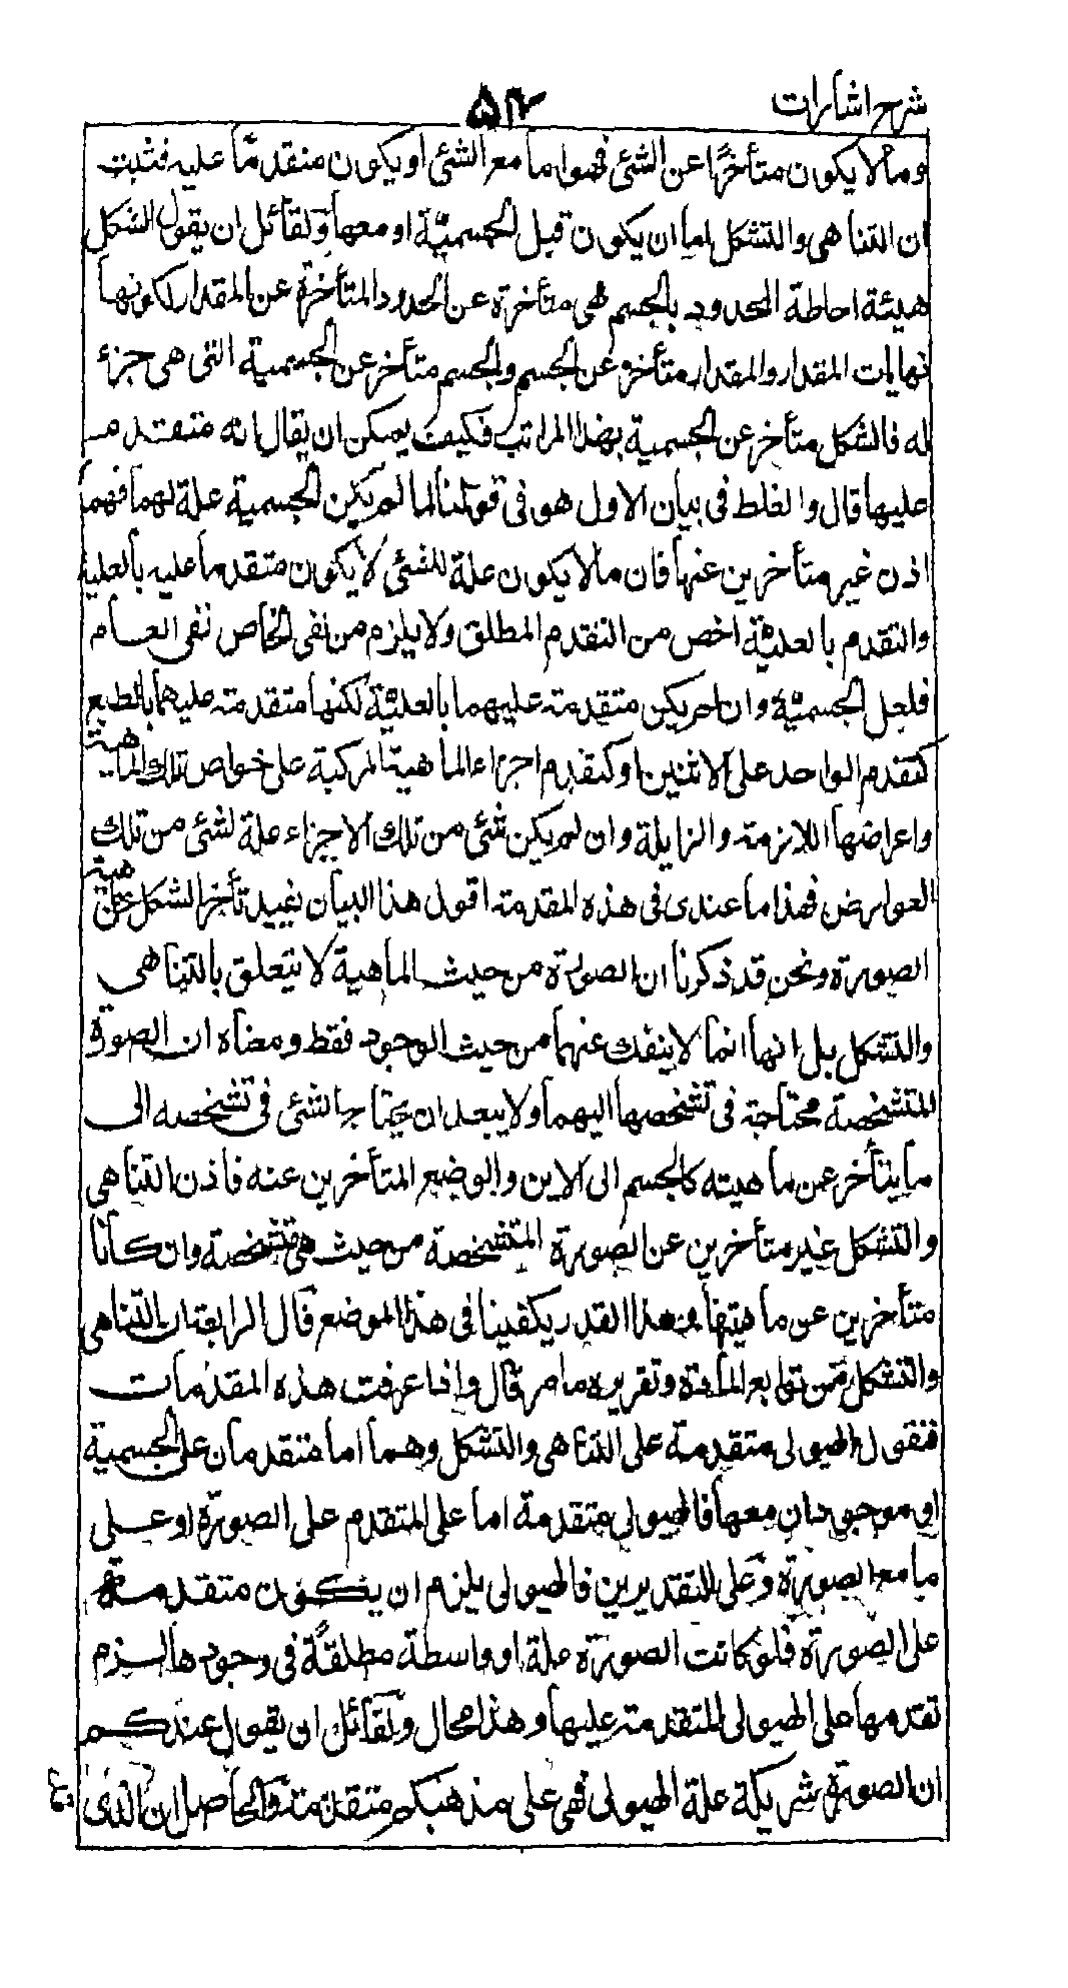 شرح اشارات
۵۴
وما لا يكون متأخرًا عن الشئ فهو اما مع الشئ او يكون متقدمًا عليه فثبت
ان التناهى والتشكل اما ان يكون قبل الجسميّة او معها ولقائل ان يقول الشكل
هيئة احاطة الحدود بالجسم فهى متأخرة عن الحدود المتأخرة عن المقدار لكونها
نهايات المقدار والمقدار متأخر عن الجسم والجسم متأخر عن الجسمية التى هى جزء
له فالشكل متأخر عن الجسمية بهذا المراتب فكيف يمكن ان يقال انه متقدم
عليها قال والغلط فى بيان الاول هو فى قولنا لما لم يكن الجسمية علة لهما فهما
اذن غير متأخرين عنها فان ما لا يكون علة للشئ لا يكون متقدما عليه بالعلية
والتقدم بالعليّة اخص من التقدم المطلق ولا يلزم من نفى الخاص نفى العام
فلعل الجسميّة وان لم يكن متقدمة عليهما بالعليّة لكنها متقدمة عليهما بالطبع
كتقدم الواحد على الاثنين او كتقدم اجزاء الماهية المركبة على خواص تلك الماهية
واعراضها اللازمة والزايلة وان لم يكن شئ من تلك الاجزاء علة لشئ من تلك
العوارض فهذا ما عندى فى هذه المقدمة اقول هذا البيان يفيد تأخر الشكل عن ماهية
الصورة ونحن قد ذكرنا ان الصورة من حيث الماهية لا يتعلق بالتناهى
والتشكل بل انها انما لا ينفك عنهما من حيث الوجود فقط ومعناه ان الصورة
المتشخصة محتاجة فى تشخصها اليهما ولا يبعد ان يحتاج الشئ فى تشخصه الى
ما يتأخر عن ماهيته كالجسم الى الاين والوضع المتأخرين عنه فاذن التناهى
والتشكل غير متأخرين عن الصورة المتشخصة من حيث هى متشخصة وان كانا
متأخرين عن ماهيتها وهذا القدر يكفينا فى هذا الموضع قال الرابعة ان التناهى
والتشكل من توابع المادة وتقريره ما مر قال واذا عرفت هذه المقدمات
فنقول الهيولى متقدمة على التناهى والتشكل وهما اما متقدمان على الجسمية
او موجودان معها فالهيولى متقدمة اما على المتقدم على الصورة او على
ما مع الصورة وعلى التقديرين فالهيولى يلزم ان يكون متقدمة
على الصورة فلو كانت الصورة علة او واسطة مطلقة فى وجودها لزم
تقدمها على الهيولى المتقدمة عليها وهذا محال ولقائل ان يقول عندكم
ان الصورة شريكة علة الهيولى فهى على مذهبكم متقدمة والحاصل ان الذى